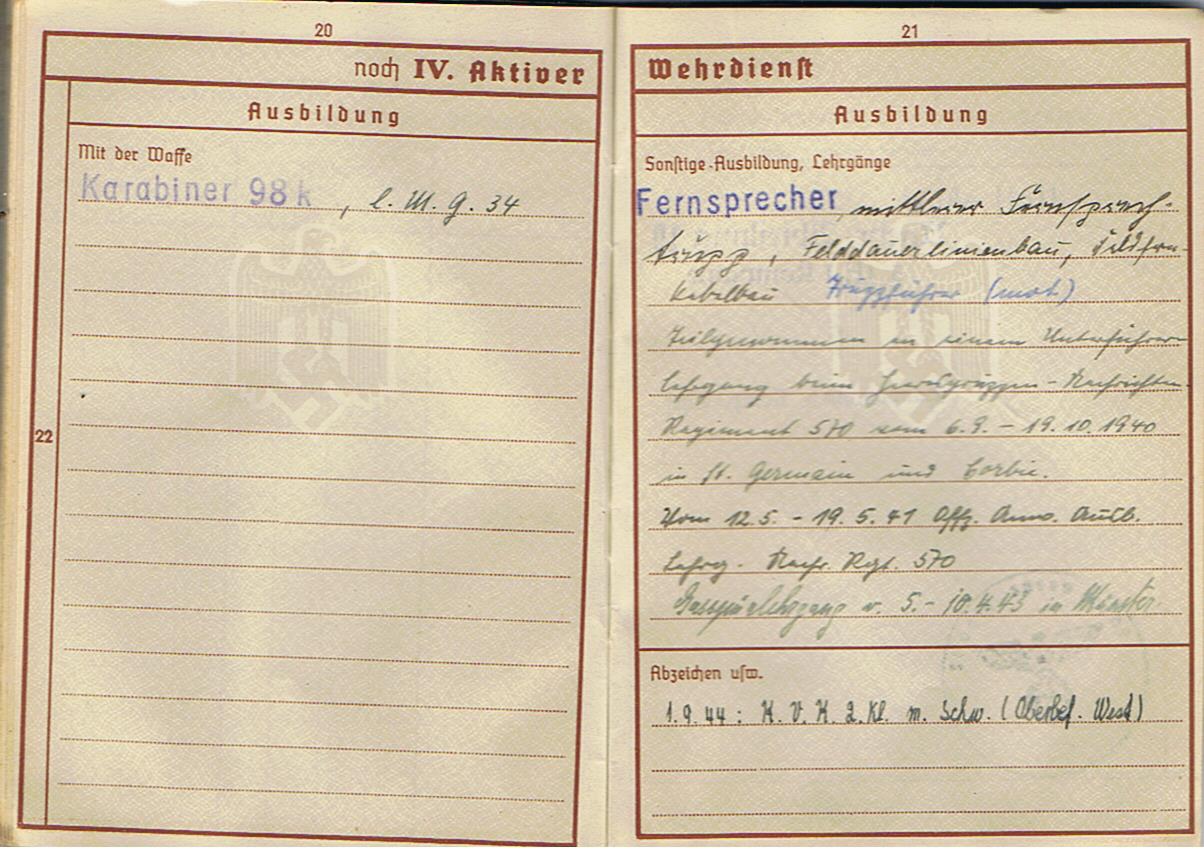 20
noch IV. Aktiver
Ausbildung
Mit der Waffe
Karabiner 98k, l. M. G. 34
22
21
Wehrdienst
Ausbildung
Sonstige Ausbildung, Lehrgänge
Fernsprecher, mittlerer Fernsprech-
trupp, Felddauerlinienbau, Feldfern-
kabelbau Truppführer (mot.)
Teilgenommen an einem Unterführer
lehrgang beim Heeresgruppen-Nachrichten-
Regiment 570 vom 6.9. - 19.10.1940
in St. Germain und Corbie.
Vom 12.5. - 19.5.41 Offz. Anw. Ausb.
Lehrg. Nachr. Rgt. 570
v. 5.- 10.4.43 in Münster
Abzeichen usw.
1.9.44: K. V. K. 2. Kl. m. Schw. (Oberbef. West)